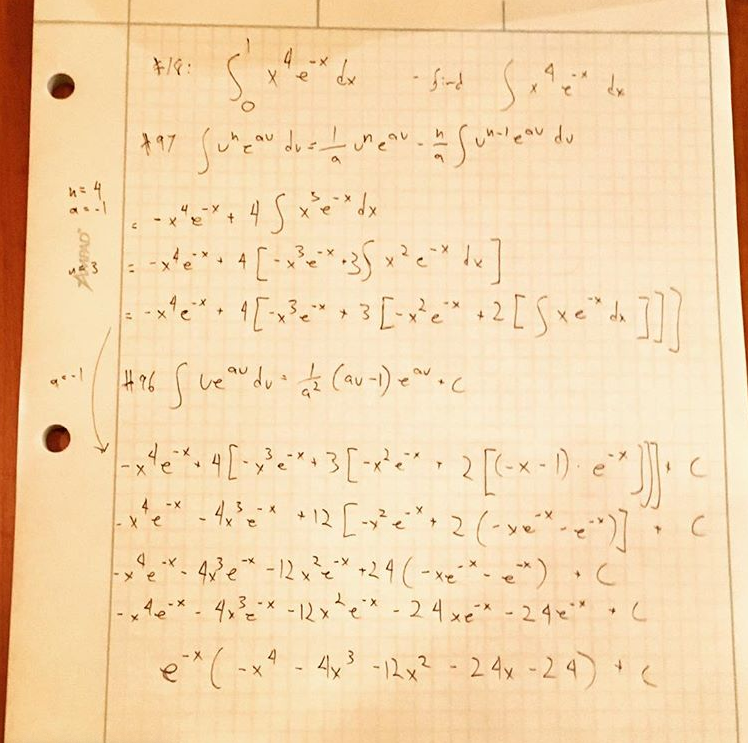 #18: ∫₀¹ x⁴e⁻ˣ dx - find ∫ x⁴e⁻ˣ dx
#97 ∫uⁿeᵃᵘ du = 1/a uⁿeᵃᵘ - n/a ∫uⁿ⁻¹eᵃᵘ du
n = 4
a = -1
= -x⁴e⁻ˣ + 4 ∫ x³e⁻ˣ dx
AMPAD
n = 3
= -x⁴e⁻ˣ + 4 [-x³e⁻ˣ + 3∫ x² e⁻ˣ dx]
= -x⁴e⁻ˣ + 4[-x³e⁻ˣ + 3 [-x²e⁻ˣ + 2 [∫ x e⁻ˣ dx ]]]
a = -1
#96 ∫ ueᵃᵘ du = 1/a² (au-1) eᵃᵘ + C
-x⁴e⁻ˣ + 4[-x³e⁻ˣ + 3[-x²e⁻ˣ + 2 [(-x - 1) · e⁻ˣ ]]] + C
-x⁴e⁻ˣ - 4x³e⁻ˣ + 12 [-x²e⁻ˣ + 2 (-xe⁻ˣ - e⁻ˣ)] + C
-x⁴e⁻ˣ - 4x³e⁻ˣ - 12x²e⁻ˣ + 24 (-xe⁻ˣ - e⁻ˣ) + C
-x⁴e⁻ˣ - 4x³e⁻ˣ - 12x²e⁻ˣ - 24xe⁻ˣ - 24e⁻ˣ + C
e⁻ˣ ( -x⁴ - 4x³ - 12x² - 24x - 24) + C